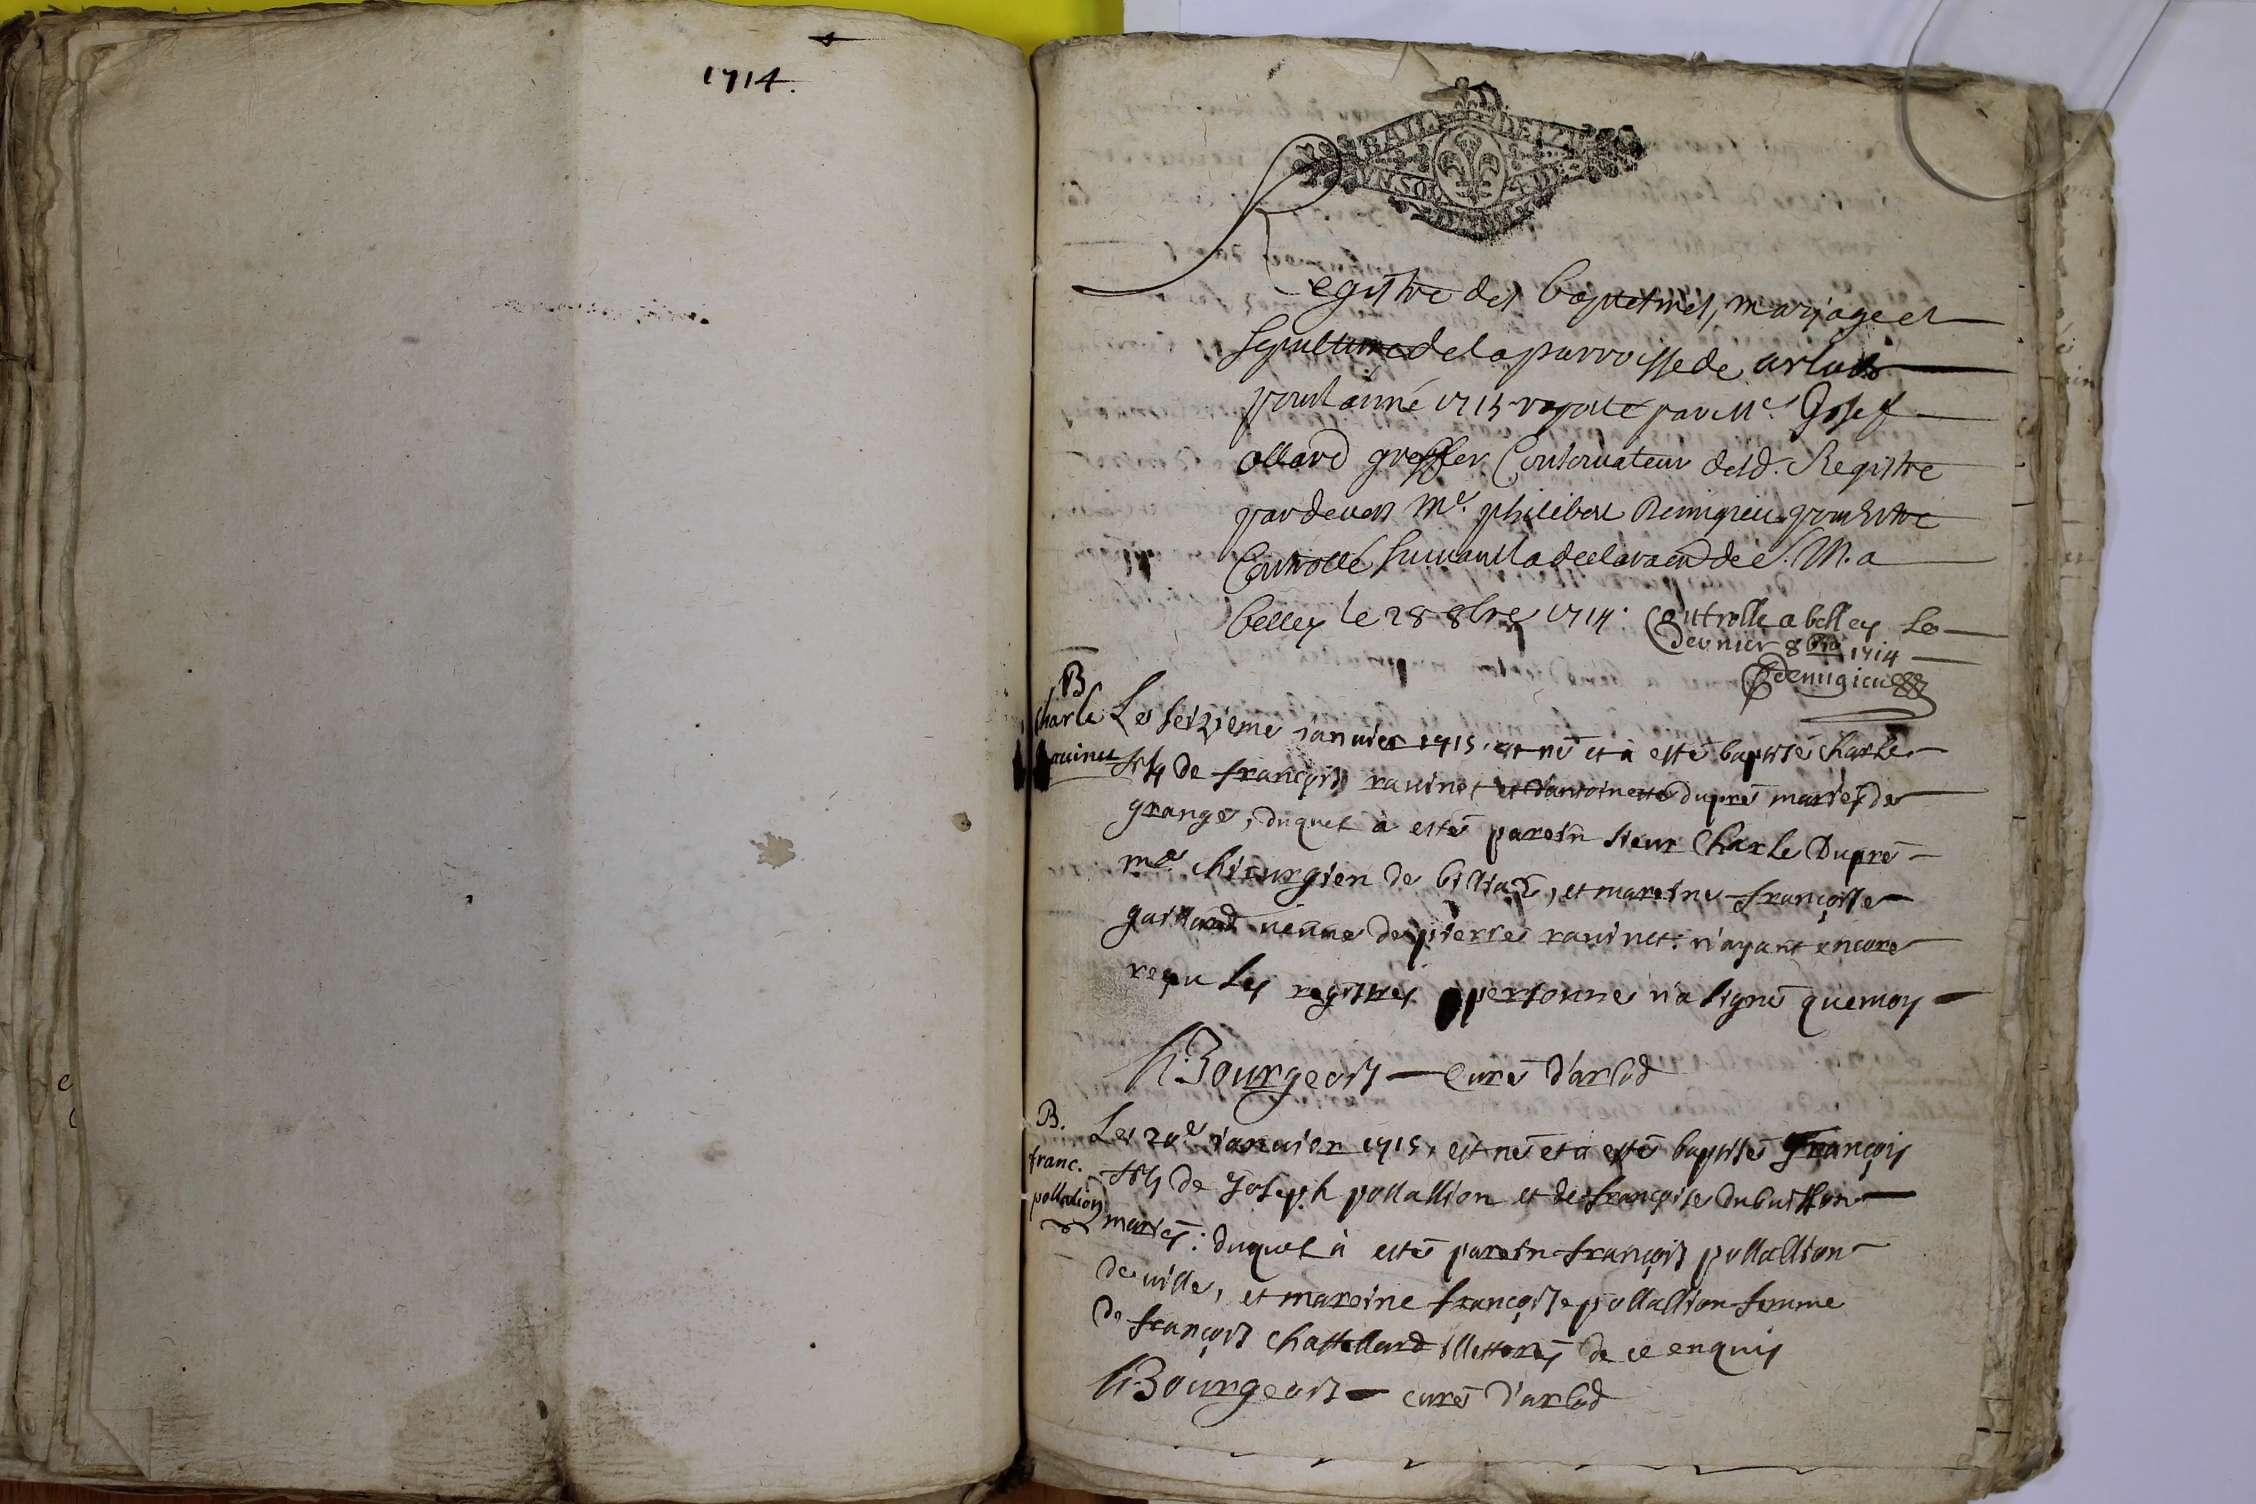 1714.
Registre des baptesmes, mariage et
sepulture de la parroisse de arlod
pour l'anné 1715 par Me. Josef
ollard greffier Conservateur desd. Registre
pardevers Me. philibert Demigieu pour estre
Controllé suivant la declaraon de S. M. a
belley le 28 8bre 1714. Controlle a belley Le
dernier 8bre 1714
Demigieu
B
Charle
ravinet
Le seizieme janvier 1715. est né et à esté baptisé charle
fils de françois ravinet et d'antoinette dupré mariés de
grange, duquel à estés parein sieur Charle Dupré
me. chirurgien de billiaz, et mareine françoise
gaillard veuve de pierre ravinet: n'ayant encore
reçu les registres personne n'a signé que moy
Bourgeois curé d'arlod
B.
franc.
pollallion
Le 20e janvier 1715, est né et à esté baptisé François
fils de Joseph pollallion et de françoise dubuisson
mariés: duquel à esté parein françois pollallion
de ville, et mareine françoise pollallion femme
de françois chastellard illettrés de ce enquis
Bourgeois curé d'arlod